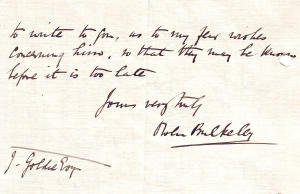 to write to you, as to my few wishes
concerning him, so that they may be known
before it is too late
Yours very truly
Bulkeley
J. Goldie Esq